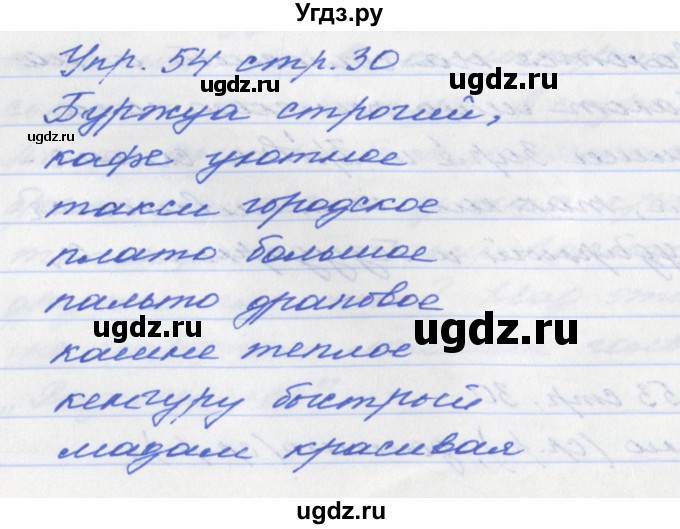 Угдз.ру
Упр. 54 стр. 30
ugdz.ru
ugdz.ru
Буржуа строгий,
ugdz.ru
кафе уютное
ugdz.ru
такси городское
плато большое
пальто драповое
ugdz.ru
ugdz.ru
кашне теплое
кенгуру быстрый
ugdz.ru
мадам красивая
ugdz.ru
ugdz.ru